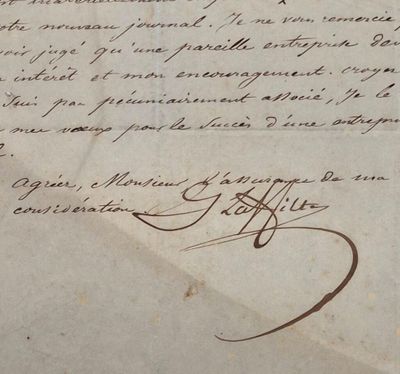 otre nouveau journal. Je ne vous remercie p
oir jugé qu'une pareille entreprise dev
intérêt et mon encouragement. croyez
suis pas pécuniairement associé, Je le
mes vœux pour le succès d'une entrepri
agréer, Monsieur l'assurance de ma
considération